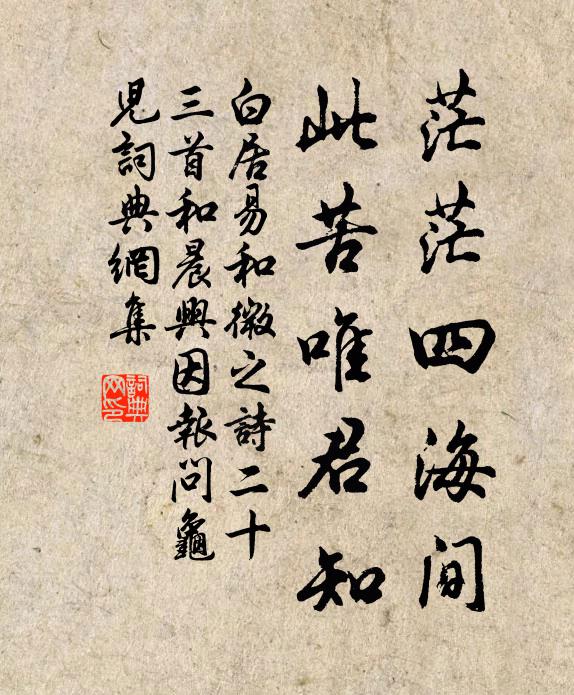 茫茫四海間
此苦唯君知
白居易和微之詩二十
三首和晨興因報問龜
兒詞典網集
詞典
网印